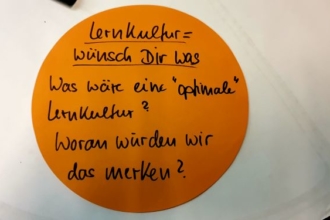 Lernkultur=
wünsch Dir was
Was wäre eine "optimale"
Lernkultur?
Woran würden wir
das merken?